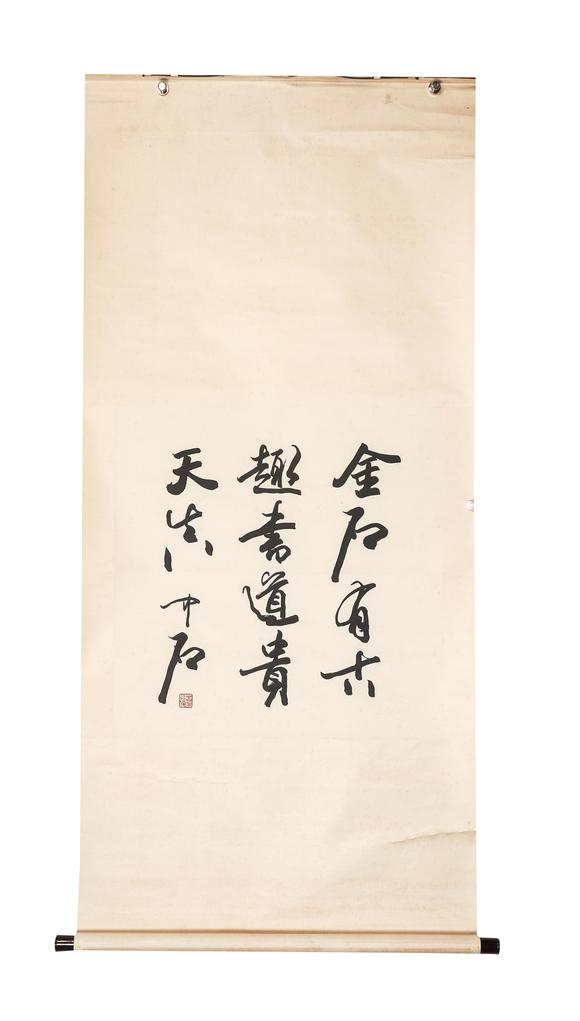 金石有古
趣書道貴
天真 中石